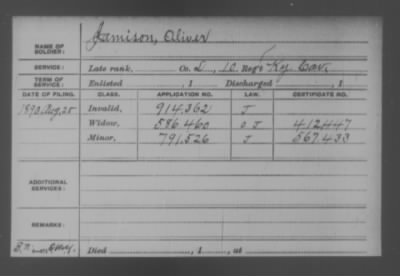 Jamison, Oliver
NAME OF SOLDIER:
SERVICE: Late rank, Co. L, 10 Reg't Ky. Cav.
TERM OF SERVICE: Enlisted , 1 Discharged , 1
DATE OF FILING. CLASS. APPLICATION NO. LAW. CERTIFICATE NO.
1890, Aug, 25 Invalid, 914,362 J
Widow, 586.460 J 412447
Minor, 791,526 J 567.433
ADDITIONAL SERVICES:
REMARKS:
Died , 1 , at